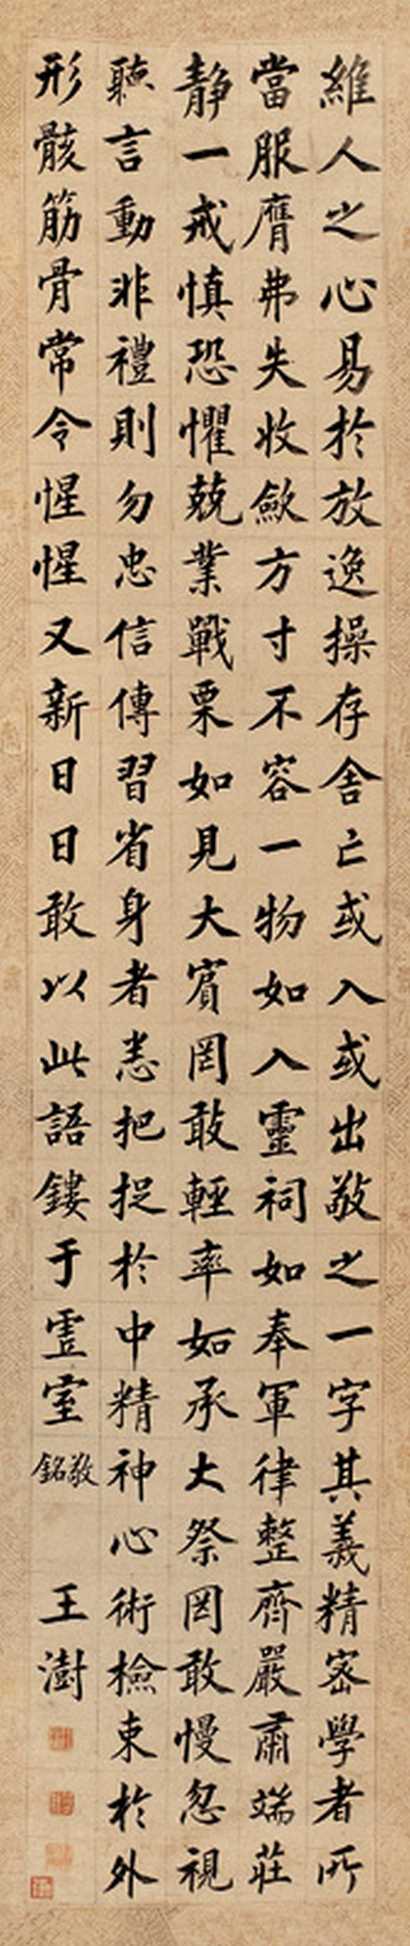 維人之心易於放逸操存舍亡或入或出敬之一字其義精密學者所
當服膺弗失收斂方寸不容一物如入靈祠如奉軍律整齊嚴肅端莊
靜一戒慎恐懼兢業戰栗如見大賓罔敢輕率如承大祭罔敢慢忽視
聽言動非禮則勿忠信傳習省身者悉把捉於中精神心術檢束於外
形骸筋骨常令惺惺又新日日敢以此語鏤于霊室
敬銘
王澍